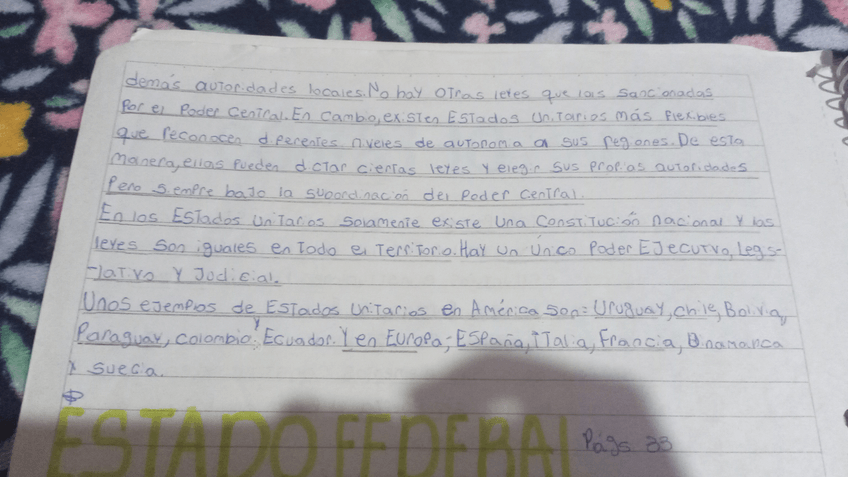 demás autoridades locales. No hay otras leies que las sancionadas
Por el Poder Central. En Cambio, existen Estados Unitarios más flexibles
que reconocen diferentes niveles de autonomia a sus regiones. De esta
manera, ellas pueden dictar ciertas leyes y elegir sus propias autoridades
Pero siempre bajo la subordinación del Poder Central.
En los Estados Unitarios solamente existe una Constitución nacional y las
leyes son iguales en todo el territorio. Hay un Único Poder Ejecutivo, Legis-
-lativo y Judicial.
Unos ejemplos de Estados Unitarios en América son: Uruguay, Chile, Bolivia,
Paraguay, Colombia, y Ecuador. Y en Europa; España, Italia, Francia, Dinamarca
y Suecia.
ESTADO FEDERAL Págs 33